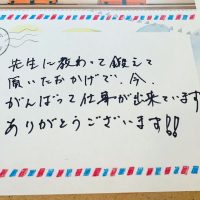 先生に教わって鍛えて
頂いたおかげで、今、
がんばって仕事が出来ています
ありがとうございます!!